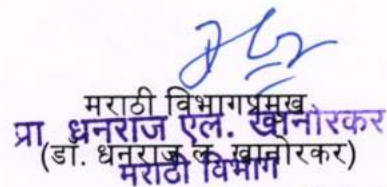 मराठी विभागप्रमुख
प्रा. धनराज एल. खानोरकर
(डॉ. धनराज ल. खानोरकर)
मराठी विभाग